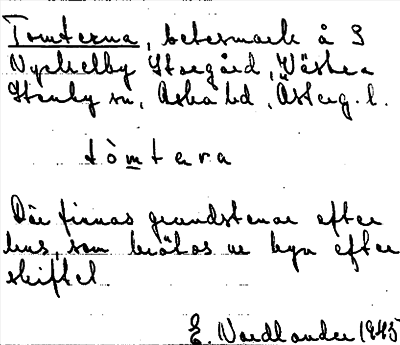 Tomterna, betesmark å S
Nyckelby Storgård, Västra
Stenby sn, Aska hd, Österg. l.
tòmtera
Där finnas grundstenar efter
hus, som brötos ur byn efter
skiftet.
E. Nordlander 1945